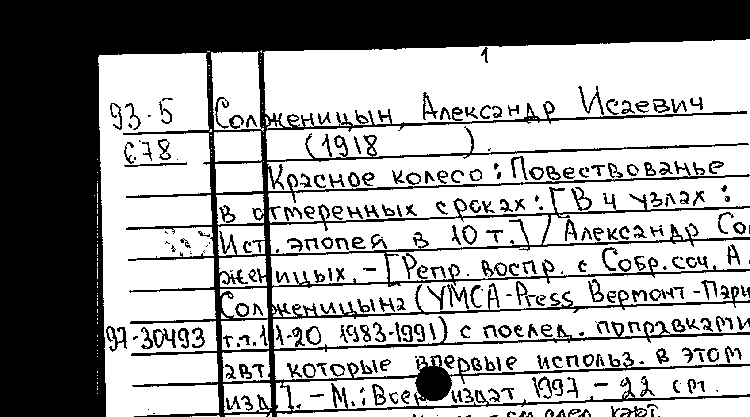 1
93-5 Солженицын, Александр Исаевич
С78 (1918 ).
Красное колесо: Повествованье
в отмеренных сроках: [В 4 узлах:
Ист. эпопея в 10 т.] / Александр Со
женицых. - [Репр. воспр. с Собр. соч. А.
Солженицына (YMCA-Press, Вермонт-Пари
97-30493 т.т. 11-20, 1983-1991) с послед. поправками
авт. которые впервые использ. в этом
изд.]. - М.: Воен издат, 1997. - 22 см.
след. карт.